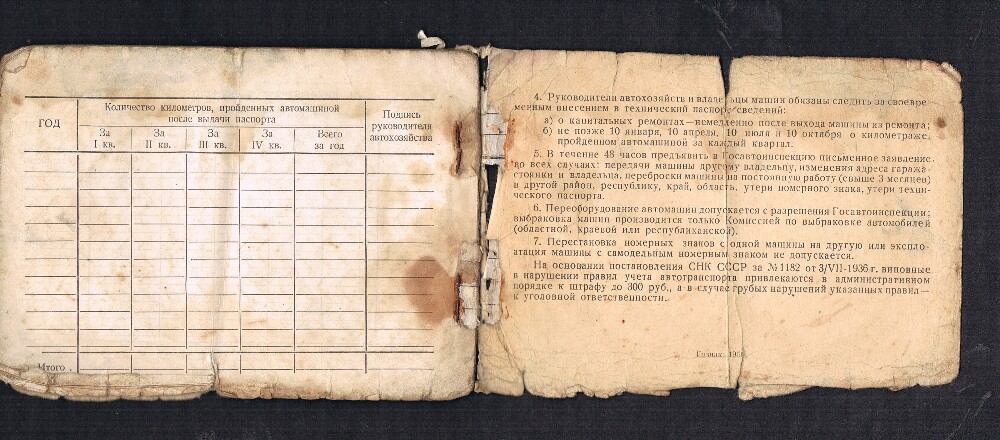 ГОД
Количество километров, пройденных автомашиной
после выдачи паспорта
Подпись
руководителя
автохозяйства
За
I кв.
За
II кв.
За
III кв.
За
IV кв.
Всего
за год
Итого .
4. Руководители автохозяйств и владельцы машин обязаны следить за своевре-
менным внесением в технический паспорт сведений:
а) о капитальных ремонтах—немедленно после выхода машины из ремонта;
б) не позже 10 января, 10 апреля, 10 июля и 10 октября о километраже,
пройденном автомашиной за каждый квартал.
5. В течение 48 часов предъявить в Госавтоинспекцию письменное заявление
во всех случаях: передачи машины другому владельцу, изменения адреса гаража-
стоянки и владельца, переброски машины на постоянную работу (свыше 3 месяцев)
в другой район, республику, край, область, утери номерного знака, утери техни-
ческого паспорта.
6. Переоборудование автомашин допускается с разрешения Госавтоинспекции;
выбраковка машин производится только Комиссией по выбраковке автомобилей
(областной, краевой или республиканской).
7. Перестановка номерных знаков с одной машины на другую или экспло-
атация машины с самодельным номерным знаком не допускается.
На основании постановления СНК СССР за № 1182 от 3/VII-1936 г. виновные
в нарушении правил учета автотранспорта привлекаются в административном
порядке к штрафу до 300 руб., а в случае грубых нарушений указанных правил—
к уголовной ответственности.
Гознак.